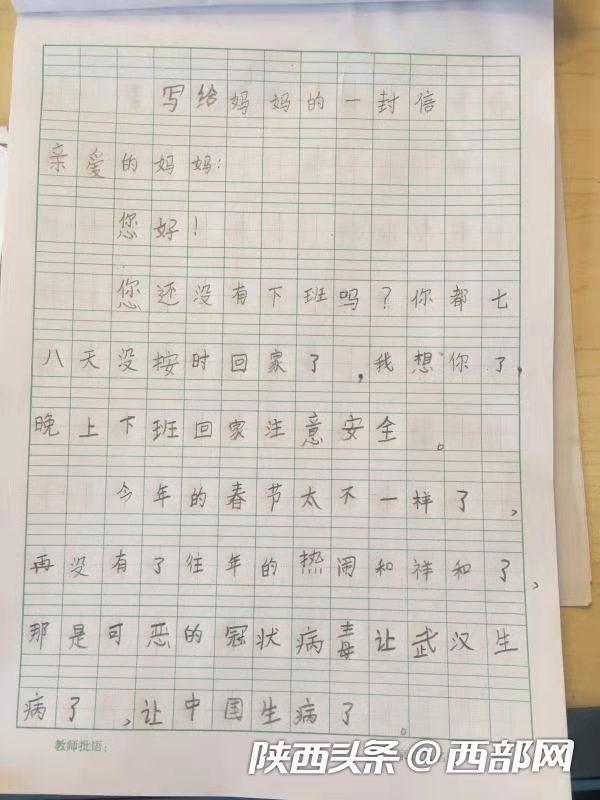 写给妈妈的一封信
亲爱的妈妈:
您好!
您还没有下班吗?你都七
八天没按时回家了,我想你了,
晚上下班回家注意安全。
今年的春节太不一样了,
再没有了往年的热闹和祥和了,
那是可恶的冠状病毒让武汉生
病了,让中国生病了。
教师批语:
陕西头条@西部网